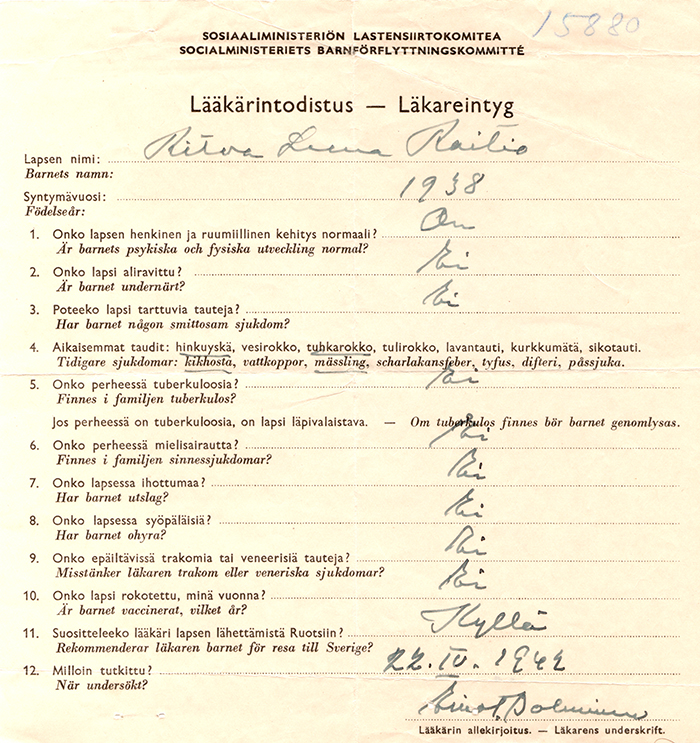 15880
SOSIAALIMINISTERIÖN LASTENSIIRTOKOMITEA
SOCIALMINISTERIETS BARNFÖRFLYTTNINGSKOMMITTÉ
Lääkärintodistus — Läkareintyg
Lapsen nimi: Ritva Leena Raitio
Barnets namn:
Syntymävuosi: 1938
Födelseår:
1. Onko lapsen henkinen ja ruumiillinen kehitys normaali? On
Är barnets psykiska och fysiska utveckling normal?
2. Onko lapsi aliravittu? Ei
Är barnet undernärt?
3. Poteeko lapsi tarttuvia tauteja? Ei
Har barnet någon smittosam sjukdom?
4. Aikaisemmat taudit: hinkuyskä, vesirokko, tuhkarokko, tulirokko, lavantauti, kurkkumätä, sikotauti.
Tidigare sjukdomar: kikhosta, vattkoppor, mässling, scharlakansfeber, tyfus, difteri, påssjuka.
5. Onko perheessä tuberkuloosia? Ei
Finnes i familjen tuberkulos?
Jos perheessä on tuberkuloosia, on lapsi läpivalaistava. — Om tuberkulos finnes bör barnet genomlysas.
6. Onko perheessä mielisairautta? Ei
Finnes i familjen sinnessjukdomar?
7. Onko lapsessa ihottumaa? Ei
Har barnet utslag?
8. Onko lapsessa syöpäläisiä? Ei
Har barnet ohyra?
9. Onko epäiltävissä trakomia tai veneerisiä tauteja? Ei
Misstänker läkaren trakom eller veneriska sjukdomar?
10. Onko lapsi rokotettu, minä vuonna? Ei
Är barnet vaccinerat, vilket år?
11. Suositteleeko lääkäri lapsen lähettämistä Ruotsiin? Kyllä
Rekommenderar läkaren barnet för resa till Sverige?
12. Milloin tutkittu? 22.IV.1942
När undersökt?
Lääkärin allekirjoitus. — Läkarens underskrift.